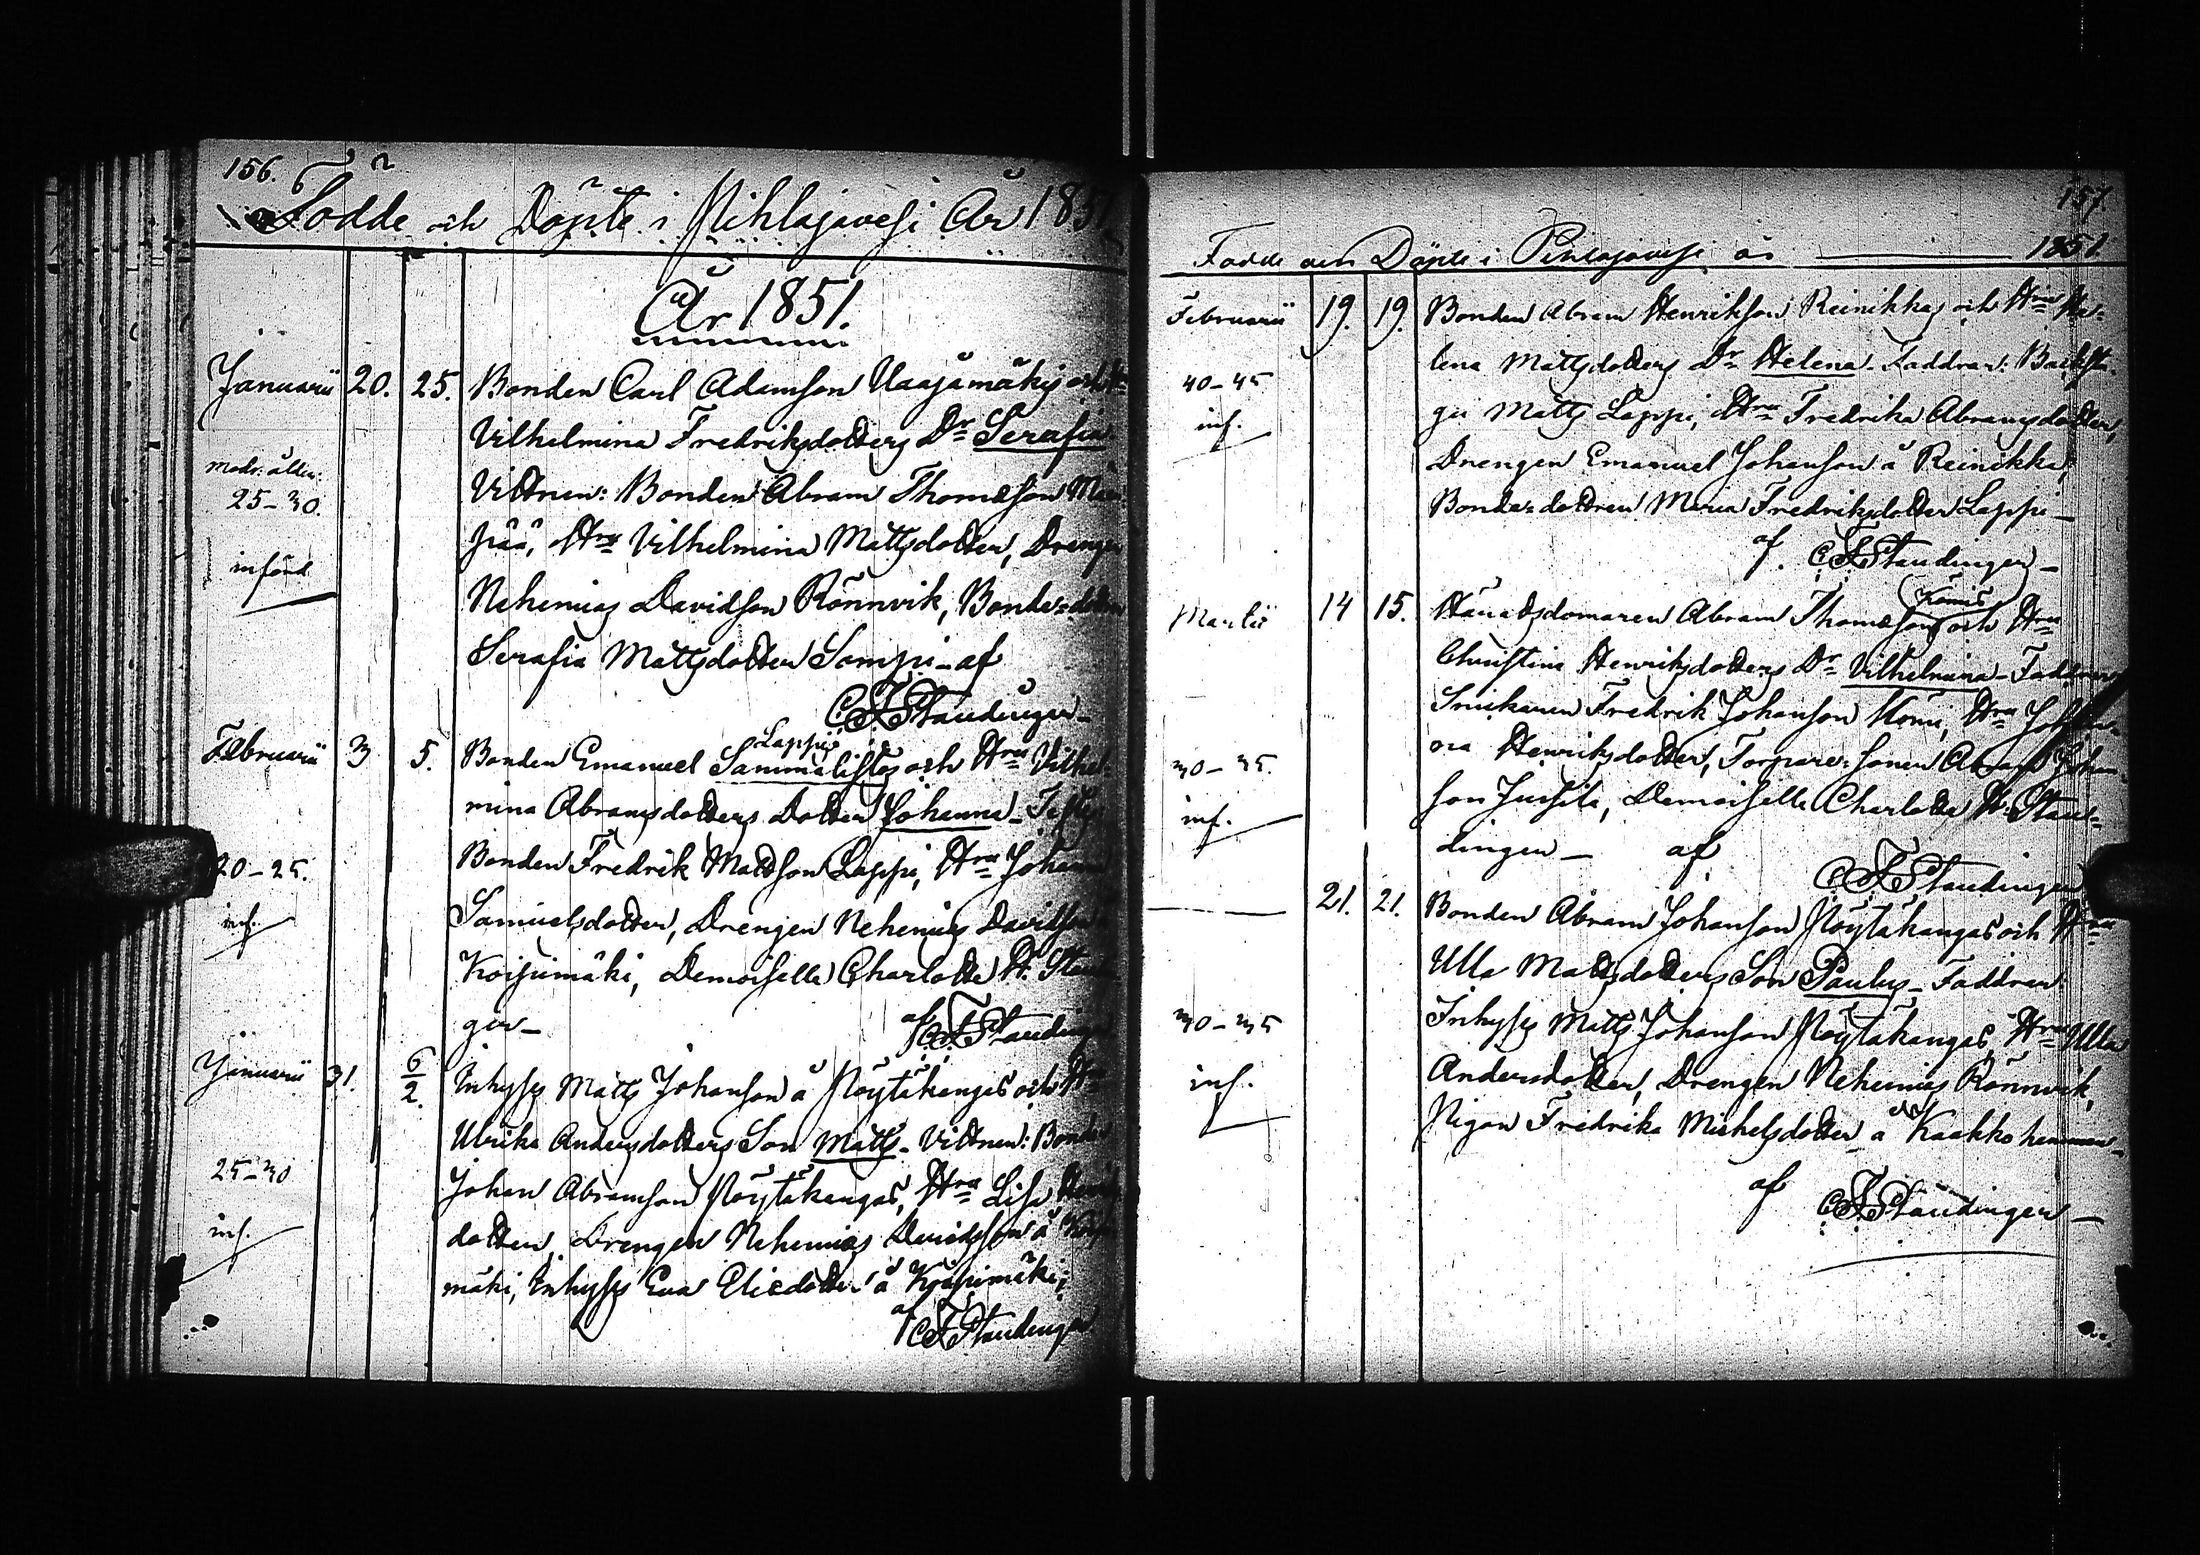 156.
Födde och Döpte i Pihlajavesi År 1851
År 1851.
Januarii 20. 25. Bonden Carl Adamson Uaajamäkis och
Vilhelmina Fredriksdotters Dr Serafia
modr. ålder: Vittnen: Bonden Abram Thomeson
25-30. pää, Hru Vilhelmina Mattsdotter, Drengen
införd Nehemias Davidson Rönnvik, Bonde-dottren
Serafia Mattsdotter Sompi - af
C F Staudinger
Lappis
Februarii 3 5. Bonden Emanuel Sammalistos och Hru Vilhel-
mina Abramsdotters Dotter Johanna -
20-25. Bonden Fredrik Mattson Lappi, Hru Johanna
inf. Samuelsdotter, Drengen Nehemias Davidson
Koipimäki, Demoiselle Charlotta H. Staudin
ger - af C F Staudinger
Januarii 31. 6/2. Inhyses Matts Johanson å Pöytäkangas och Hru
Ulrika Andersdotters Son Matts - Vittnen: Bonden
25-30 Johan Abramson Pöytäkangas, Hru Lisa
inf. dotter, Drengen Nehemias Davidsson å
mäki, Inhyses Eva Eliedotter å Koipimäki;
af C F Staudinger
157.
Födde och Döpte i Pihlajavesi år 1851.
Februarii 19. 19. Bonden Abram Henrikson Reinikkas och Hru He-
lena Mattsdotters Dr Helena - Faddrar: Backstu-
40-45 gu Matts Lappi, Hru Fredrika Abramsdotter,
inf. Drengen Emanuel Johanson å Reinikka,
Bonde-dottren Maria Fredriksdotter Lappi -
af. C F Staudinger -
Martii 14 15. Häradsdomaren Abram Thomeson och Hru
Christina Henriksdotters Dr Vilhelmina - Faddrar
Snickaren Fredrik Johanson Kömi, Hru
30-35. Henriksdotter, Torpare-sonen Abram Johan-
inf. son Jussila, Demoiselle Charlotta H. Stau-
dinger - af
C F Staudinger
21. 21. Bonden Abram Johanson Pöytäkangas och Hru
Ulla Mattsdotters Son Paulus - Faddrar:
30-35 Inhyses Matts Johanson Pöytäkangas, Hru Ulla
inf. Andersdotter, Drengen Nehemias Rönnvik,
Pigan Fredrika Michelsdotter å Kaakko hemman -
af C F Staudinger -